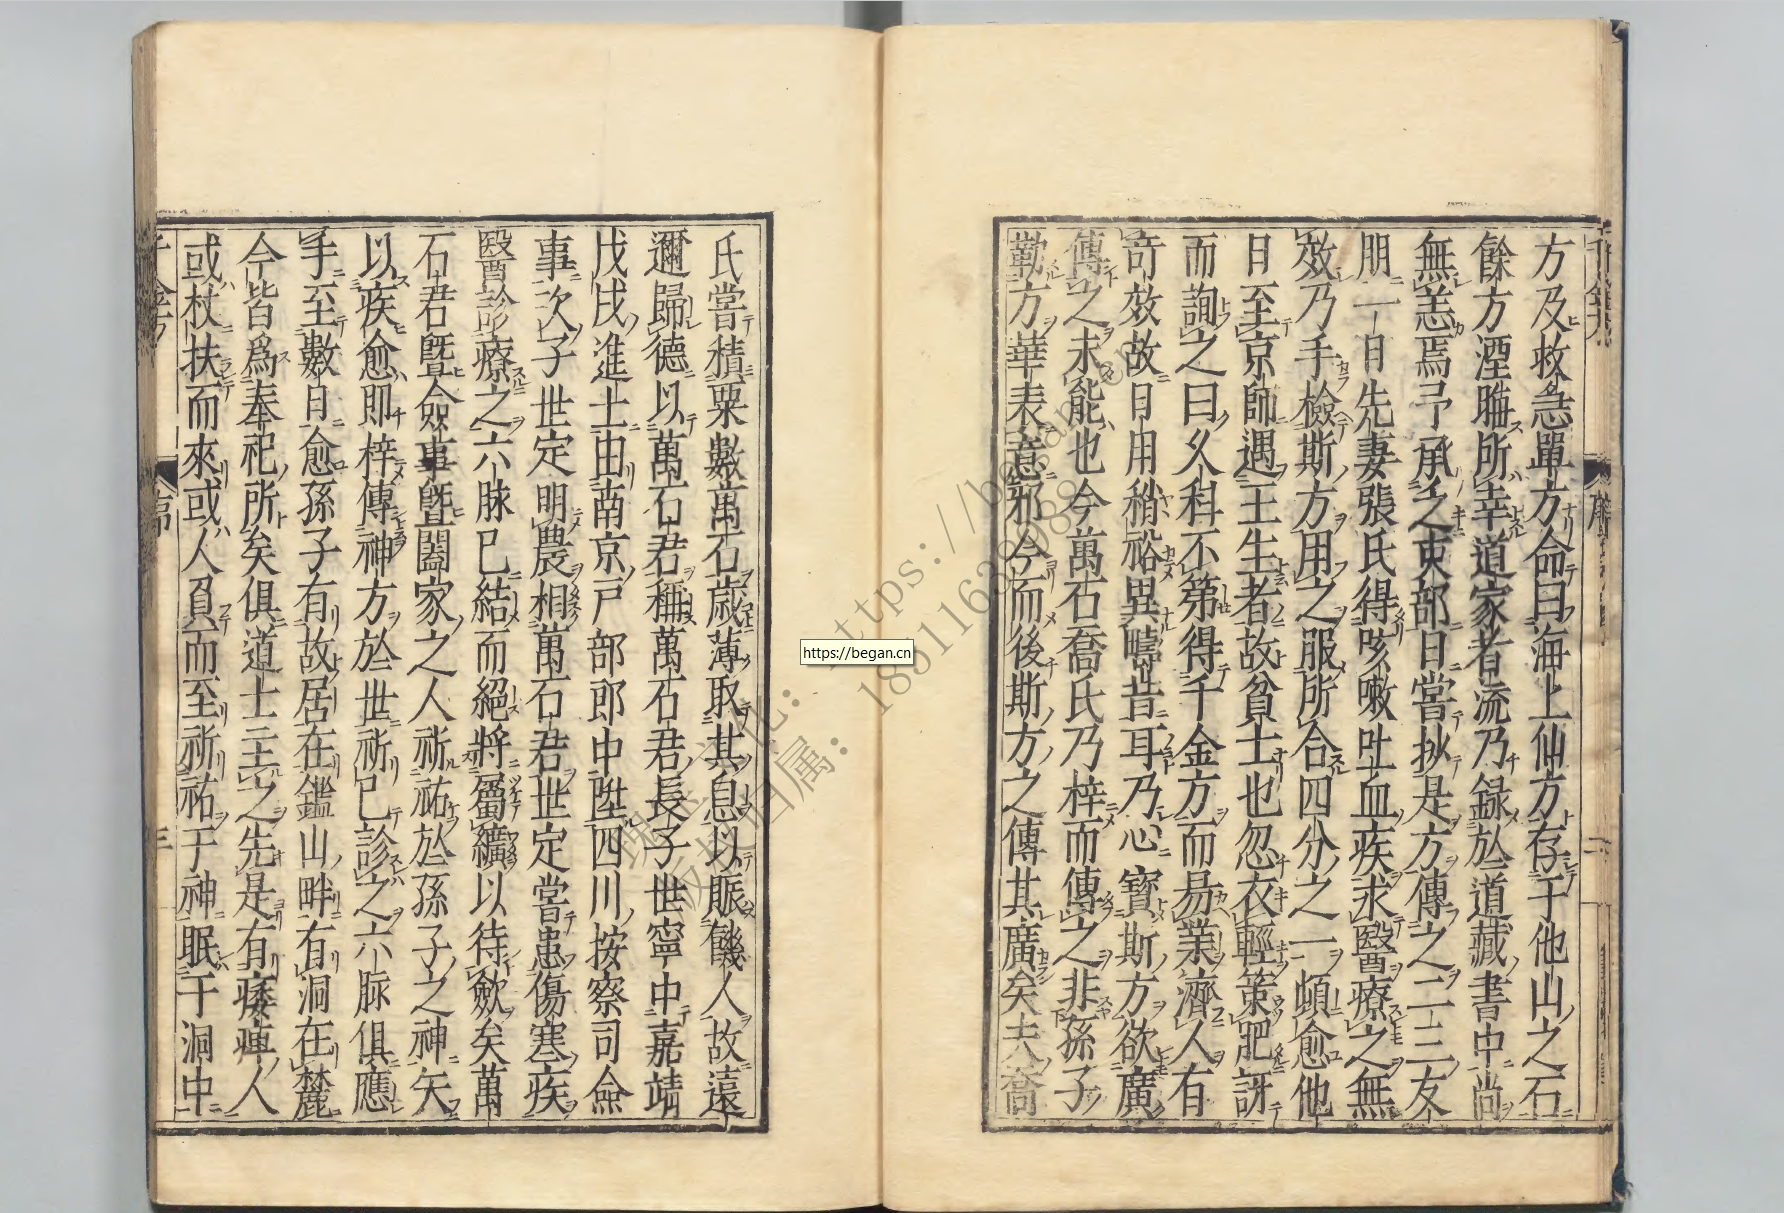 方及救急單方命曰海上仙方存于他山之石
餘方湮晦所幸道家者流乃録於道藏書中尚
無恙焉予承乏吏部日嘗抄是方傳之二三友
朋一日先妻張氏得咳嗽吐血疾求醫療之無
效乃手檢斯方用之服所合四分之一頓愈他
日至京師遇王生者故貧士也忽衣輕策肥訝
而詢之曰久科不第得千金方而易業濟人有
奇效故日用稍裕異疇昔耳乃心寶斯方欲廣
傳之未能也今萬石喬氏乃梓而傳之非孫子
勒方華表意邪今而後斯方之傳其廣矣夫喬
氏嘗積粟數萬石歲薄取其息以賑饑人故遠
邇歸德以萬石君稱萬石君長子世寧中嘉靖
戊戌進士由南京戸部郎中陞四川按察司僉
事次子世定明農相萬石君世定嘗患傷寒疾
醫診療之六脉已結而絕將屬纊以待歛矣萬
石君曁僉事曁闔家之人祈祐於孫子之神矢
以疾愈即梓傳神方於世祈已診之六脉俱應
手至數日愈孫子有故居在鑑山畔有洞在麓
今皆爲奉祀所矣俱道士主之先是有痿痺人
或杖扶而來或人負而至祈祐于神眠于洞中
序
二
三
https://began.cn